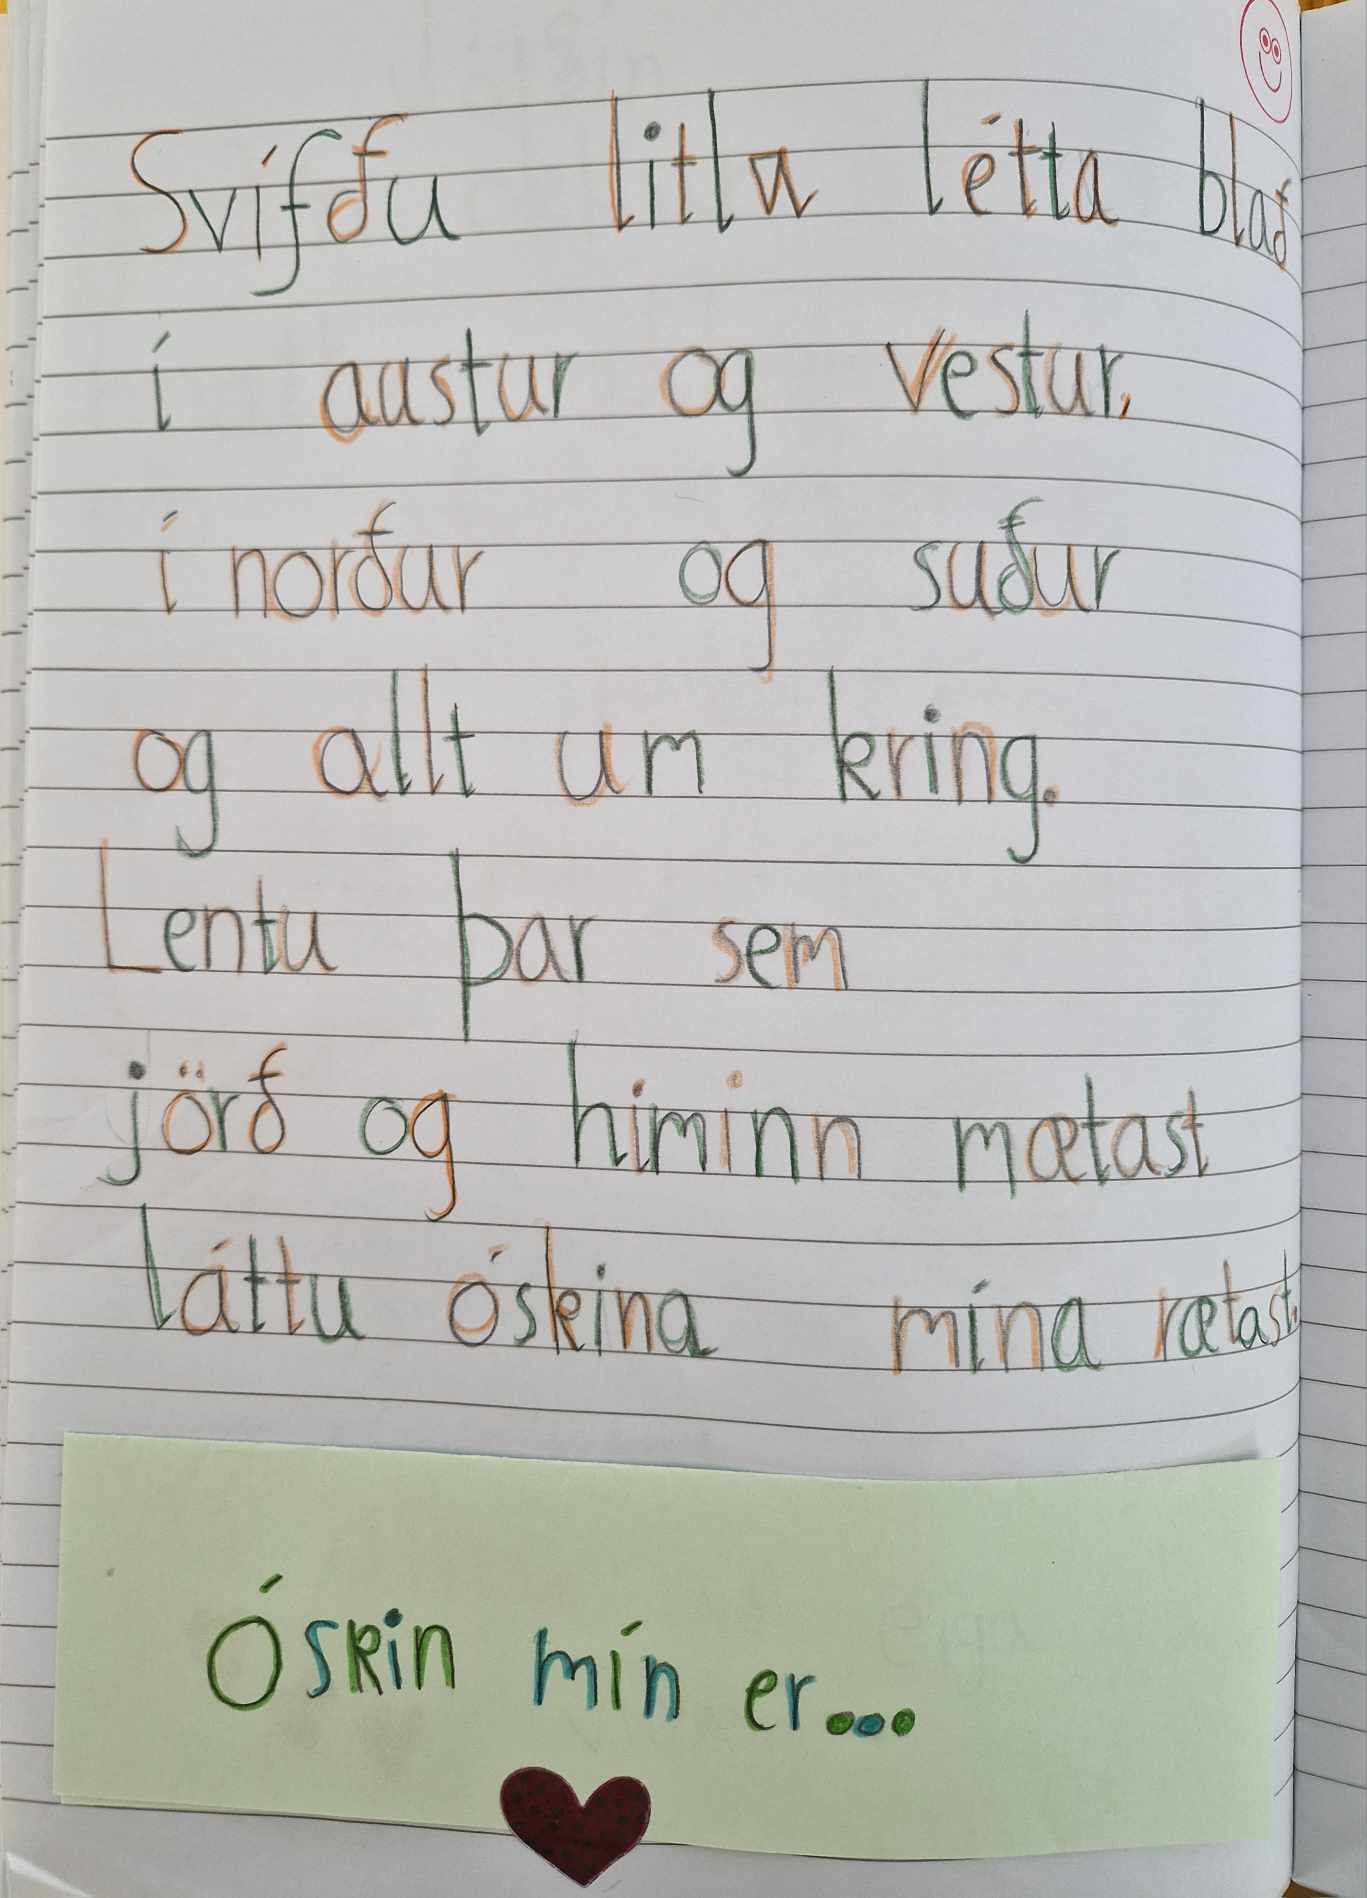 Svífðu litla létta blað
í austur og vestur,
í norður og suður
og allt um kring.
Lentu þar sem
jörð og himinn mætast
láttu óskina mína rætast.
Óskin mín er...